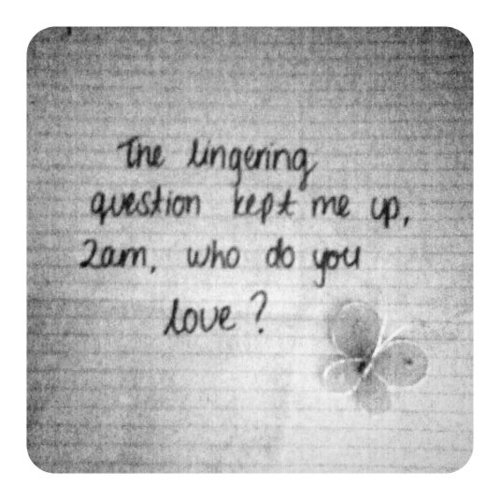 The lingering
question kept me up,
2am, who do you
love?